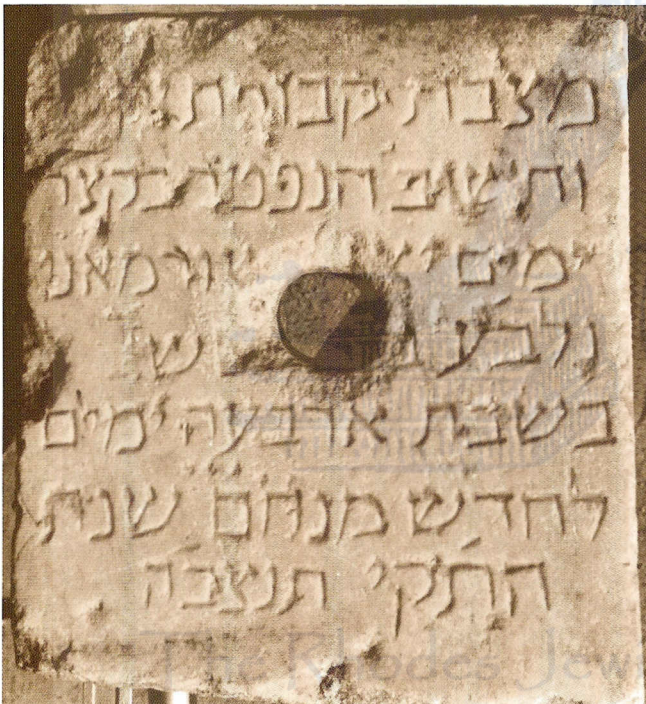 מצבת קבורת
וחישוב הנפטר בקצר
ימים
נלבע
בשבת ארבעה ימים
לחדש מנחם שנת
התקי תנצבה
The Rhodes Jew